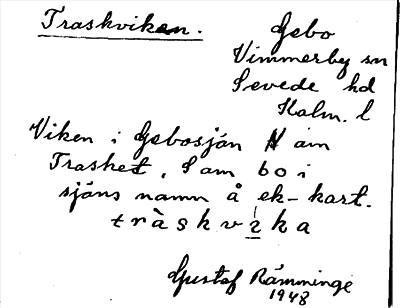 Traskviken.
Gebo
Vimmerby sn
Sevede hd
Kalm. l
Viken i Gebosjön N om
Trasket, S om bo i
sjöns namn å ek-kart.
tràskvika
Gustaf Rämminge
1948